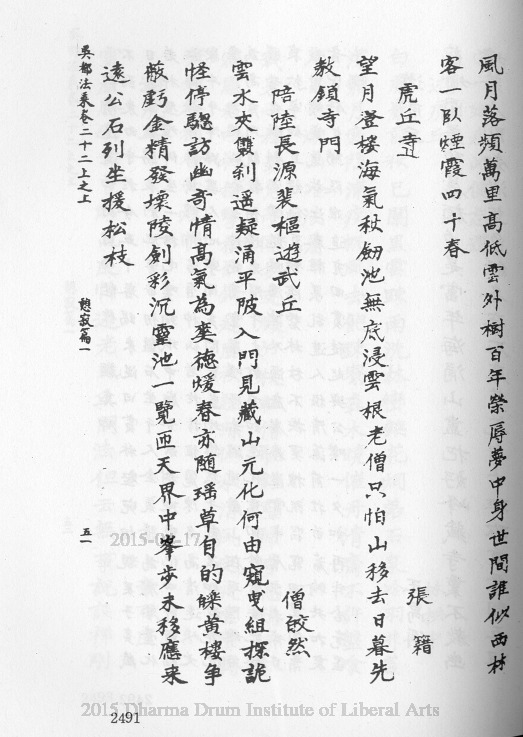 風月落頻萬里高低雲外樹百年榮辱夢中身世間誰似西林
客一臥煙霞四十春
虎丘寺 張籍
望月登樓海氣秋劒池無底浸雲根老僧只怕山移去日暮先
教鎖寺門
陪陸長源裴樞遊武丘 僧皎然
雲水夾雙刹遥疑涌平陂入門見藏山元化何由窺曳組探詭
怪停騶訪幽奇情高氣為爽德煖春亦随瑶草自的皪黃樓争
蔽虧金精發壞陵劍彩沉靈池一覽匝天界中峯步未移應来
遠公石列坐援松枝
吳都法乘卷二十二上之上 憩寂篇一 五一
2491
2015 Dharma Drum Institute of Liberal Arts